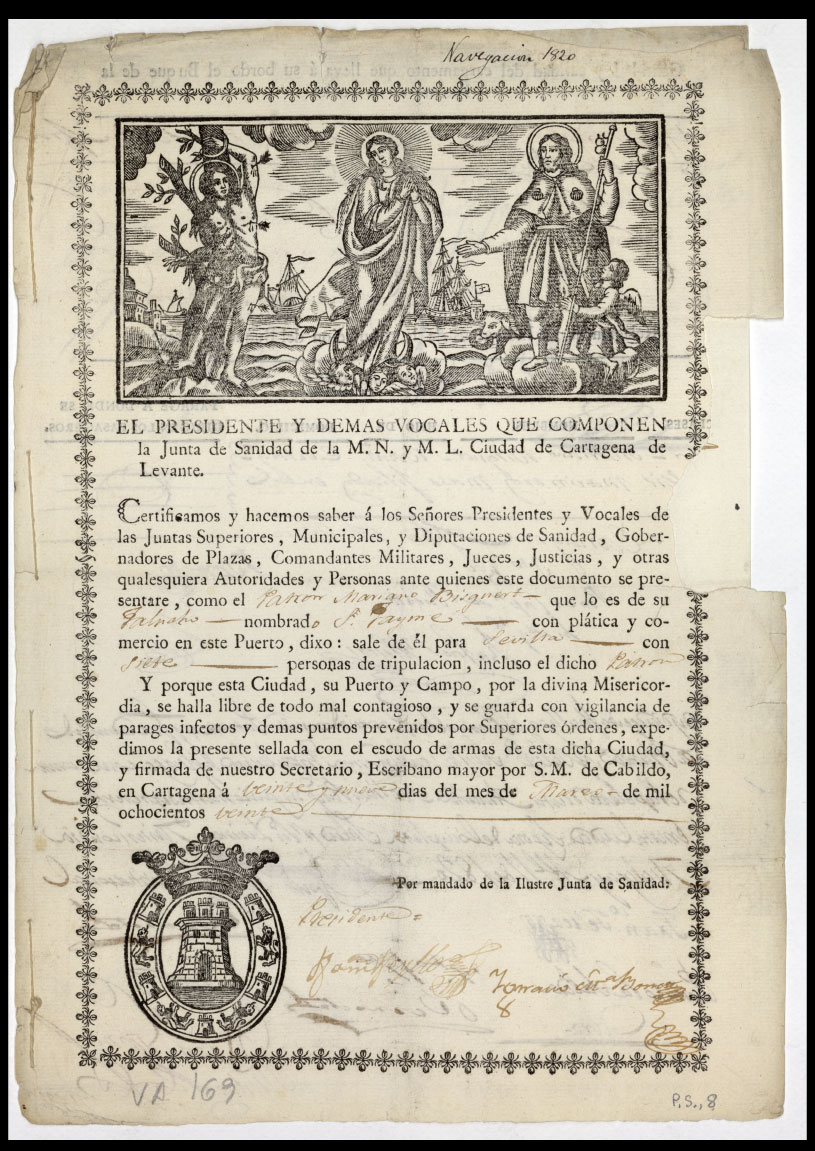 Navegacion 1820
EL PRESIDENTE Y DEMAS VOCALES QUE COMPONEN
la Junta de Sanidad de la M. N. y M. L. Ciudad de Cartagena de
Levante.
Certificamos y hacemos saber á los Señores Presidentes y Vocales de
las Juntas Superiores, Municipales, y Diputaciones de Sanidad, Gober-
nadores de Plazas, Comandantes Militares, Jueces, Justicias, y otras
qualesquiera Autoridades y Personas ante quienes este documento se pre-
sentare, como el Patron Mariano que lo es de su
nombrado Sn. Jayme con plática y co-
mercio en este Puerto, dixo: sale de él para Sevilla con
siete personas de tripulacion, incluso el dicho Patron
Y porque esta Ciudad, su Puerto y Campo, por la divina Misericor-
dia, se halla libre de todo mal contagioso, y se guarda con vigilancia de
parages infectos y demas puntos prevenidos por Superiores órdenes, expe-
dimos la presente sellada con el escudo de armas de esta dicha Ciudad,
y firmada de nuestro Secretario, Escribano mayor por S. M. de Cabildo,
en Cartagena á veinte y nueve dias del mes de Marzo de mil
ochocientos veinte
Por mandado de la Ilustre Junta de Sanidad:
Presidente
8
VA 169
P.S., 8